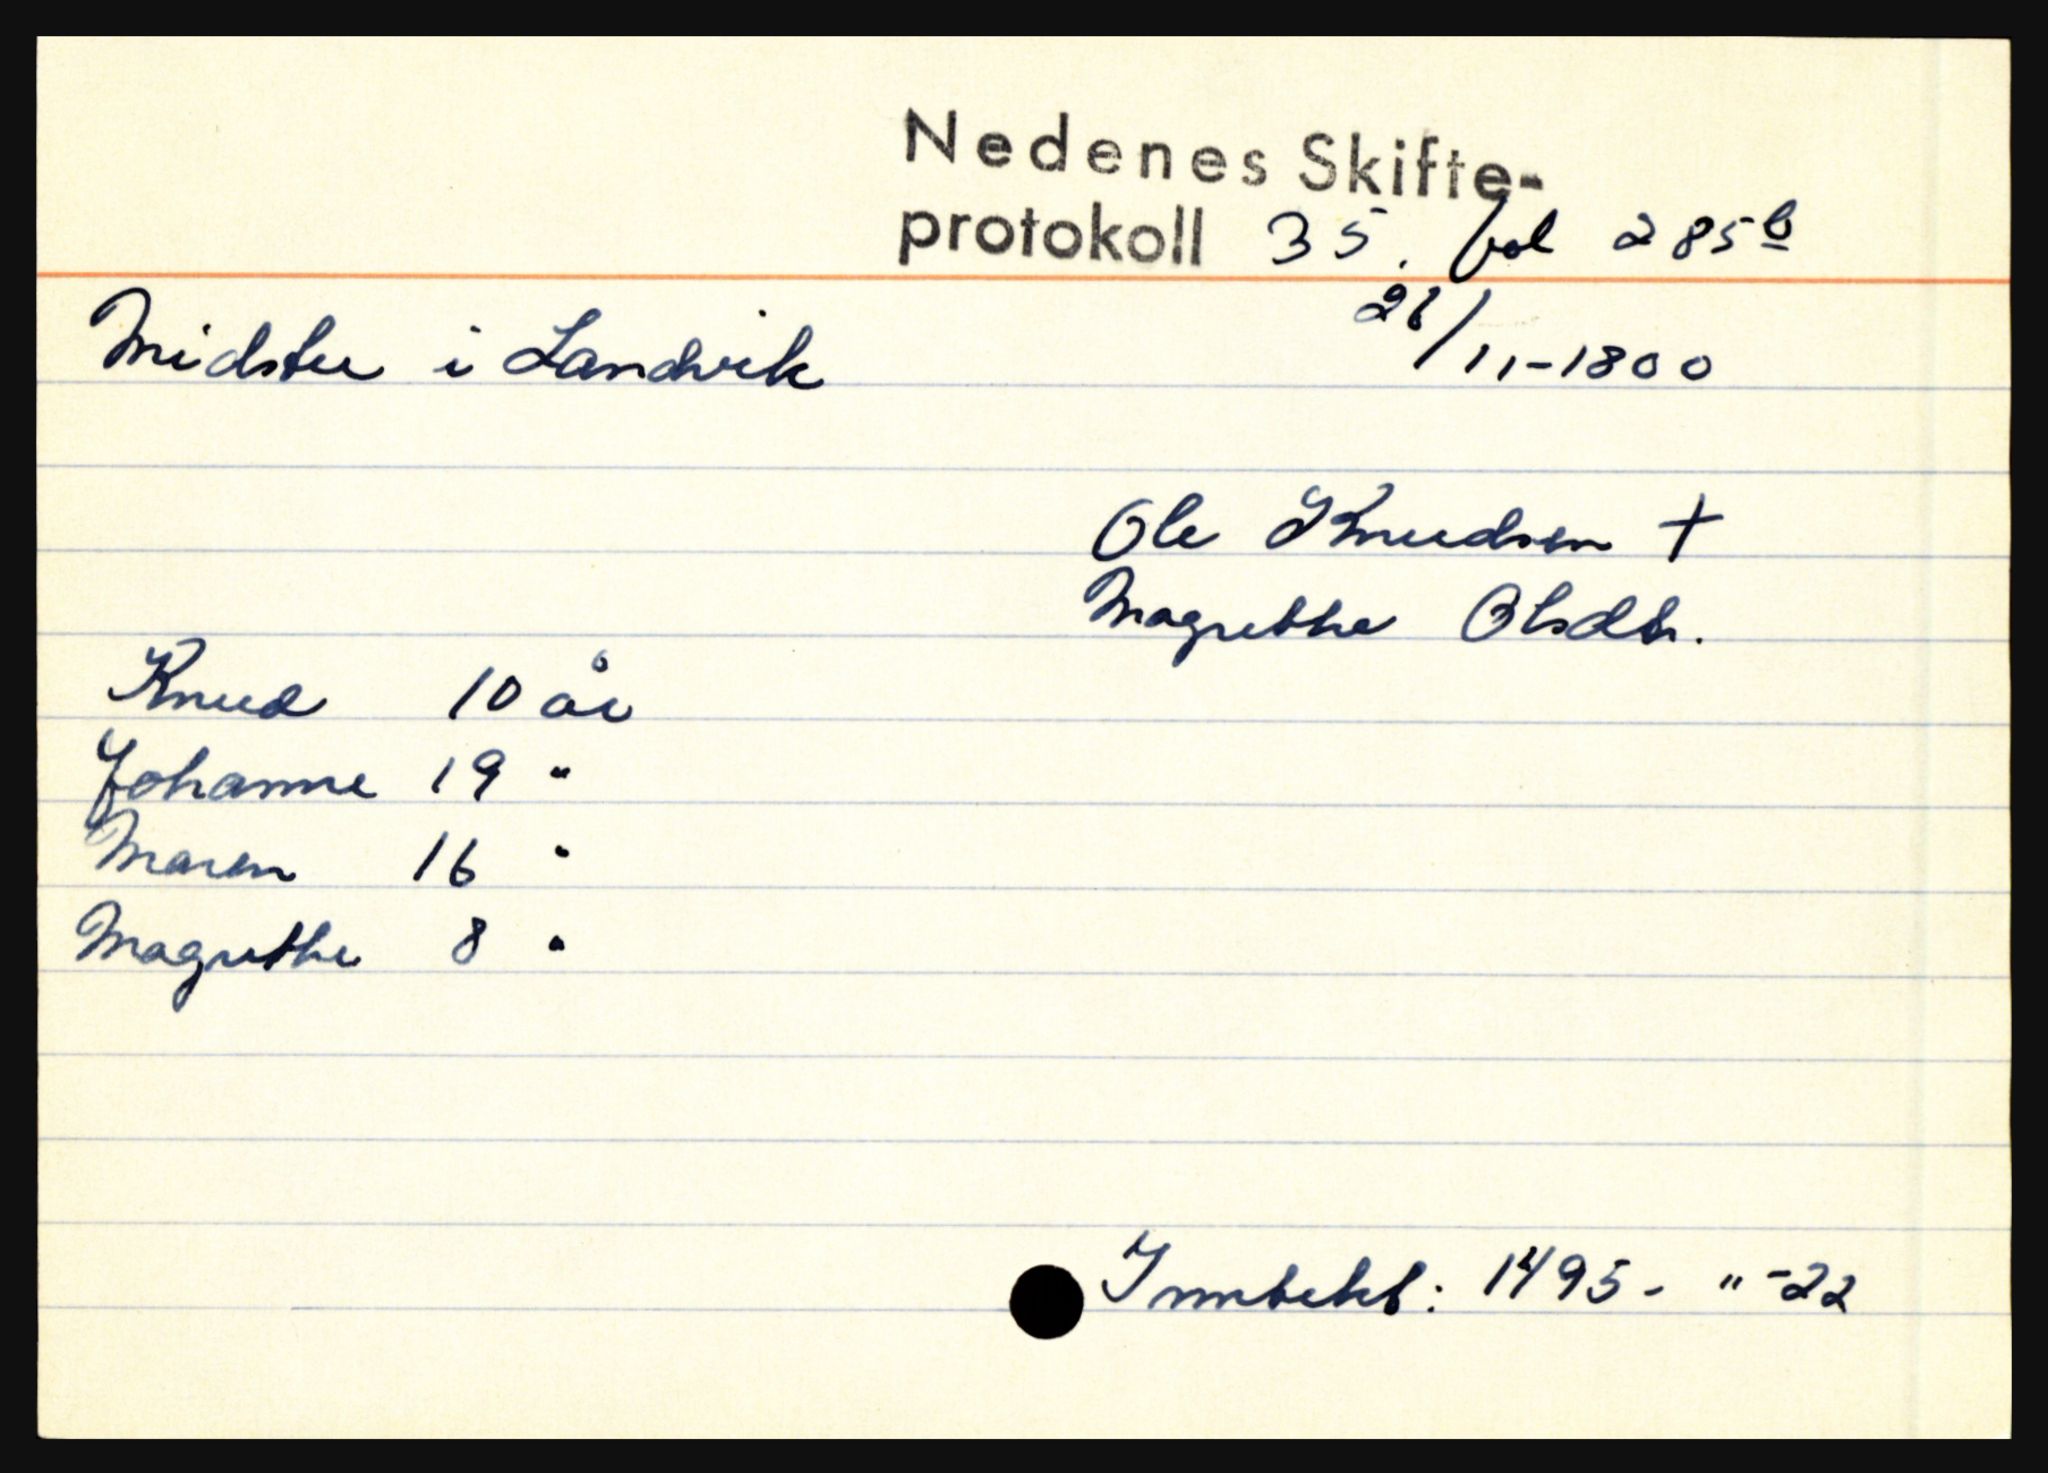 Nedenes Skifte-
protokoll 35. fol 285b
Midstu i Landvik 26/11-1800
Ole Knudsen +
Magrethe Olsdtr.
Knud 10 år
Johanne 19 "
Maren 16 "
Magrethe 8 "
Inntekt: 1495- " -22